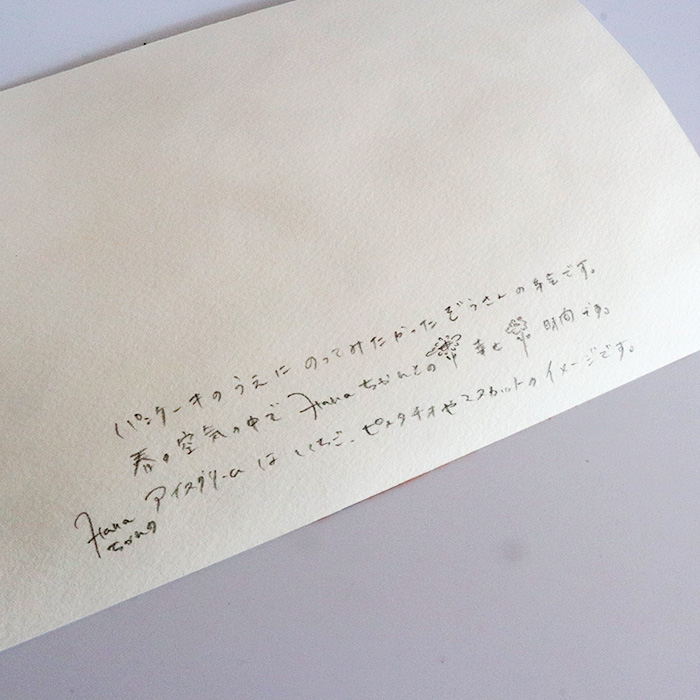 パンケーキのうえにのってみたかったぞうさんの身会です。
春の空気の中でHanaちゃんとの 幸せ 時間です。
Hanaちゃんのアイスクリームはいちご、ピスタチオやマスカットのイメージです。